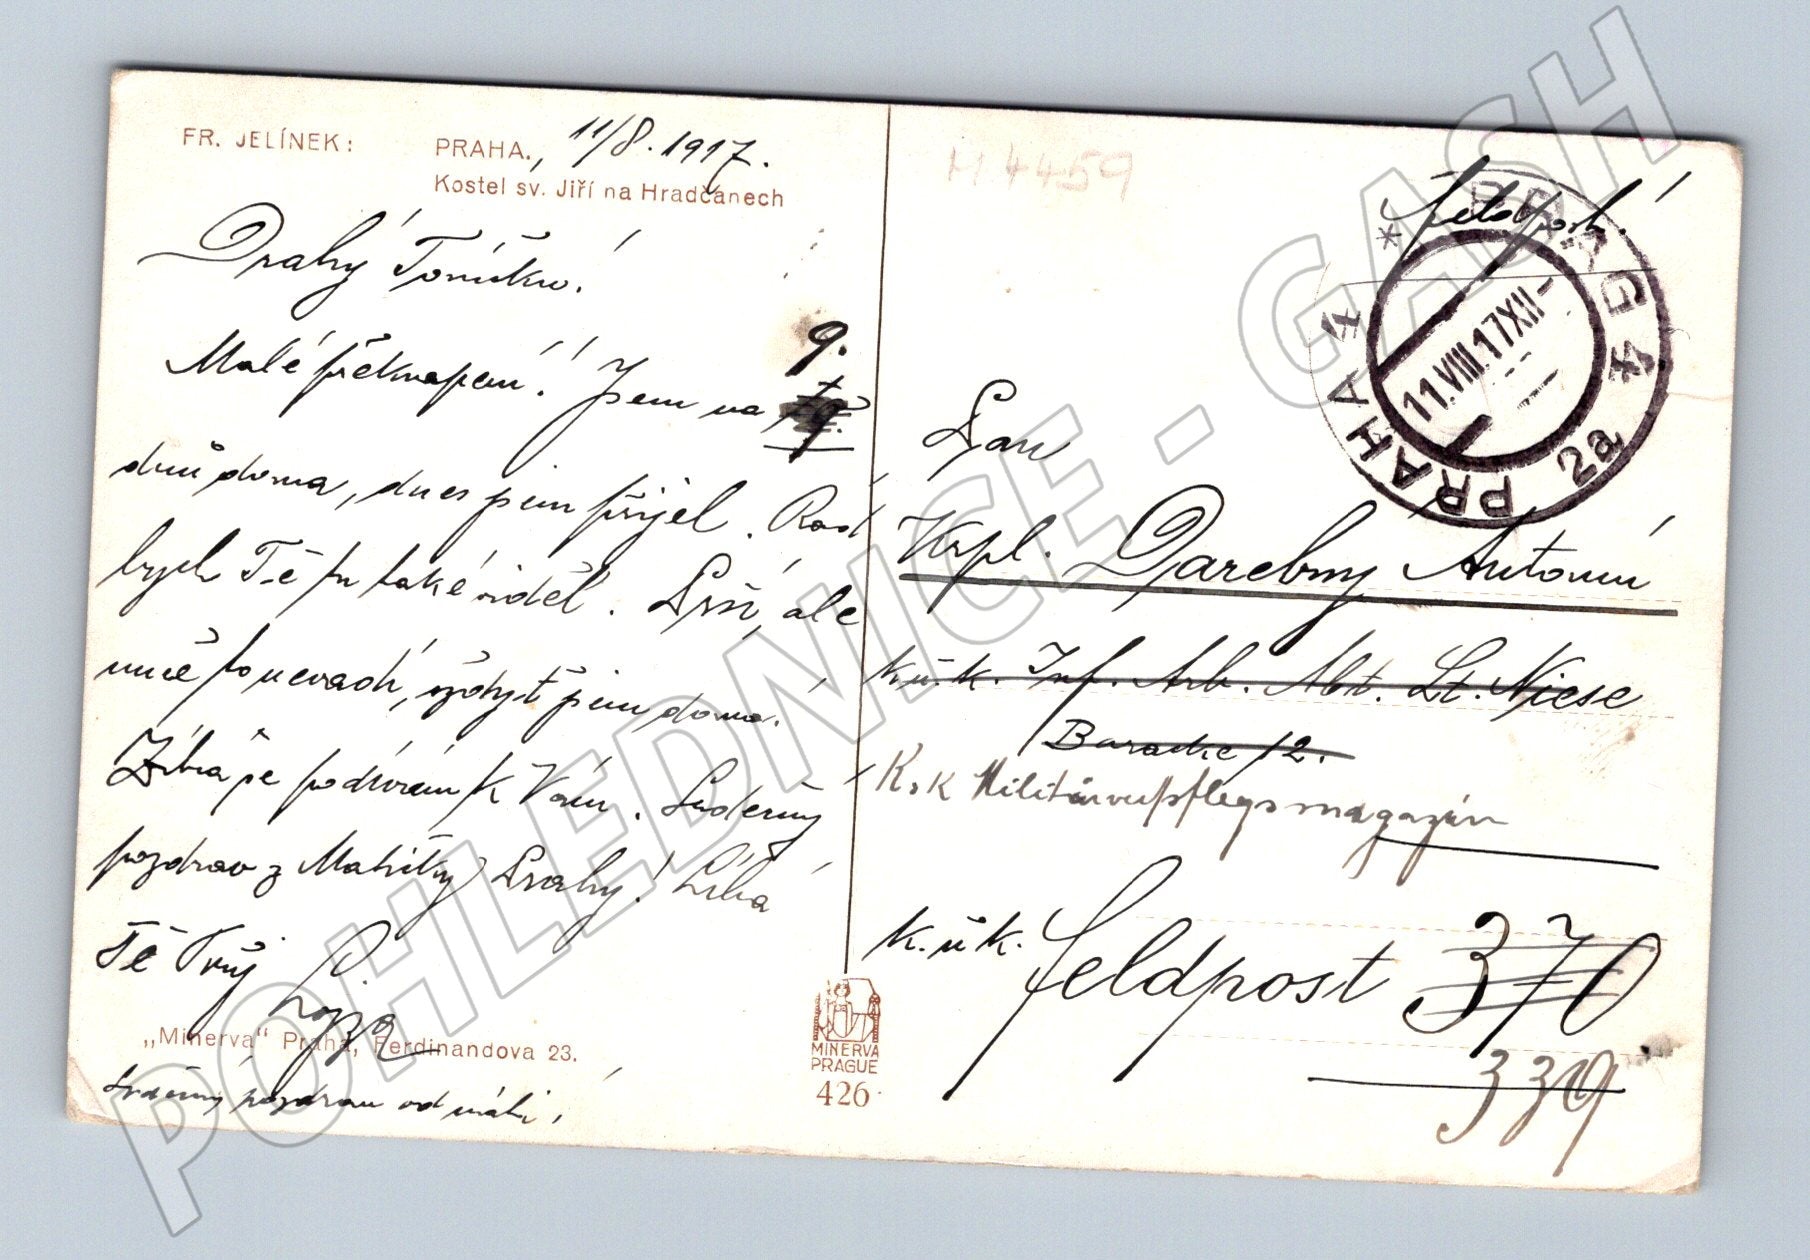 FR. JELÍNEK:
PRAHA., 11/8. 1917.
Kostel sv. Jiří na Hradčanech
Drahý Toníčku!
Malé překvapení! Jsem na 9.
dnů doma, dnes jsem přijel. Rád
bych Tě tu také viděl. Prší, ale
mně to nevadí, vždyť jsem doma.
Zítra se podívám k Vám. Srdečný
pozdrav z Matičky Prahy! Líbá
Tě Tvůj
„Minerva“ Praha, Ferdinandova 23.
Srdečný pozdrav od
MINERVA
PRAGUE
426
H 4459
Feldpost!
PRAHA 1
PRAG
2a
11.VIII.17XII-
Pan
Krpl. Darebny Antonín
K.u.k. Inf. Arb. Abt. Lt. Niese
Baracke 12.
K.k Militärverpflegsmagazin
K.u.K. Feldpost 370
339
POHLEDNICE - GASH